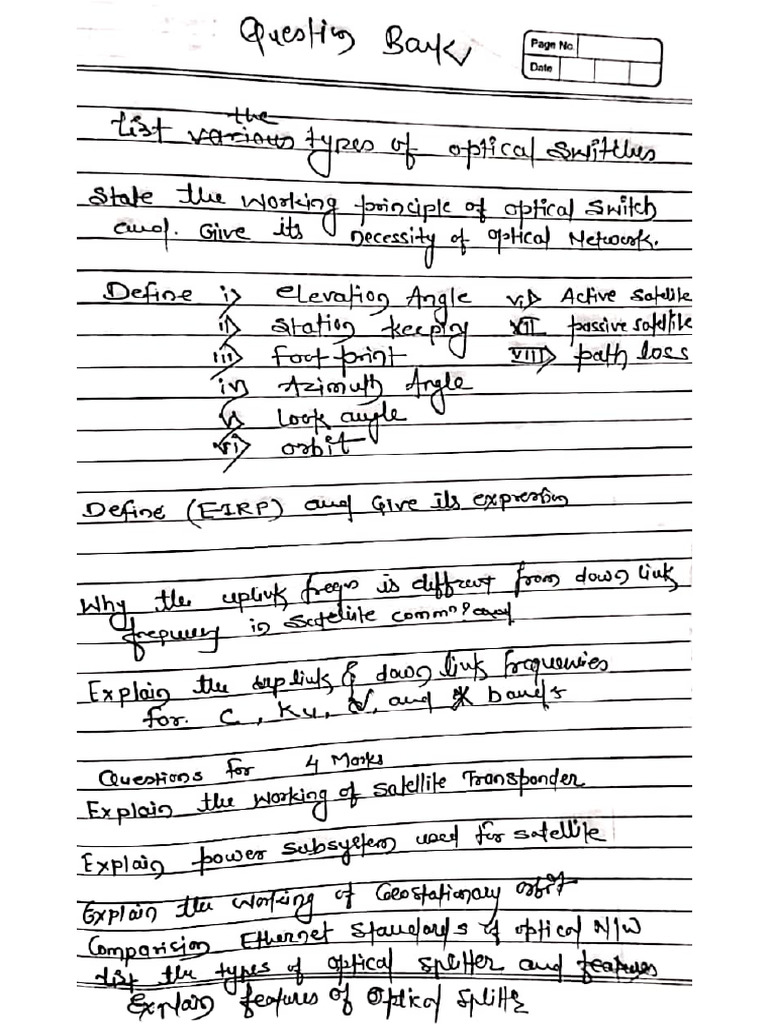 Question Bank
Page No.
Date
the
List various types of optical switches
State the working principle of optical switch
and. Give its necessity of optical Network.
Define i) Elevation Angle vi) Active satellite
ii) Station keeping VII passive satellite
iii) Foot print VIII) path loss
iv) Azimuth Angle
v) look angle
vi) orbit
Define (EIRP) and Give its expression
Why the uplink freqn is diffrent from down link
frequency in satellite commn? and
Explain the up link & down link frequencies
for. C, Ku, and X bands
Questions for 4 Marks
Explain the working of satellite Transponder
Explain power subsystem used for satellite
Explain the working of Geostationary orbit
Comparision Ethernet standards of optical N/W
List the types of optical splitter and features
Explain features of optical splitte